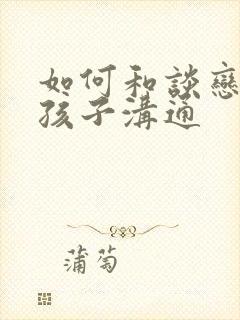 如何和談戀
孩子溝通
蒲萄